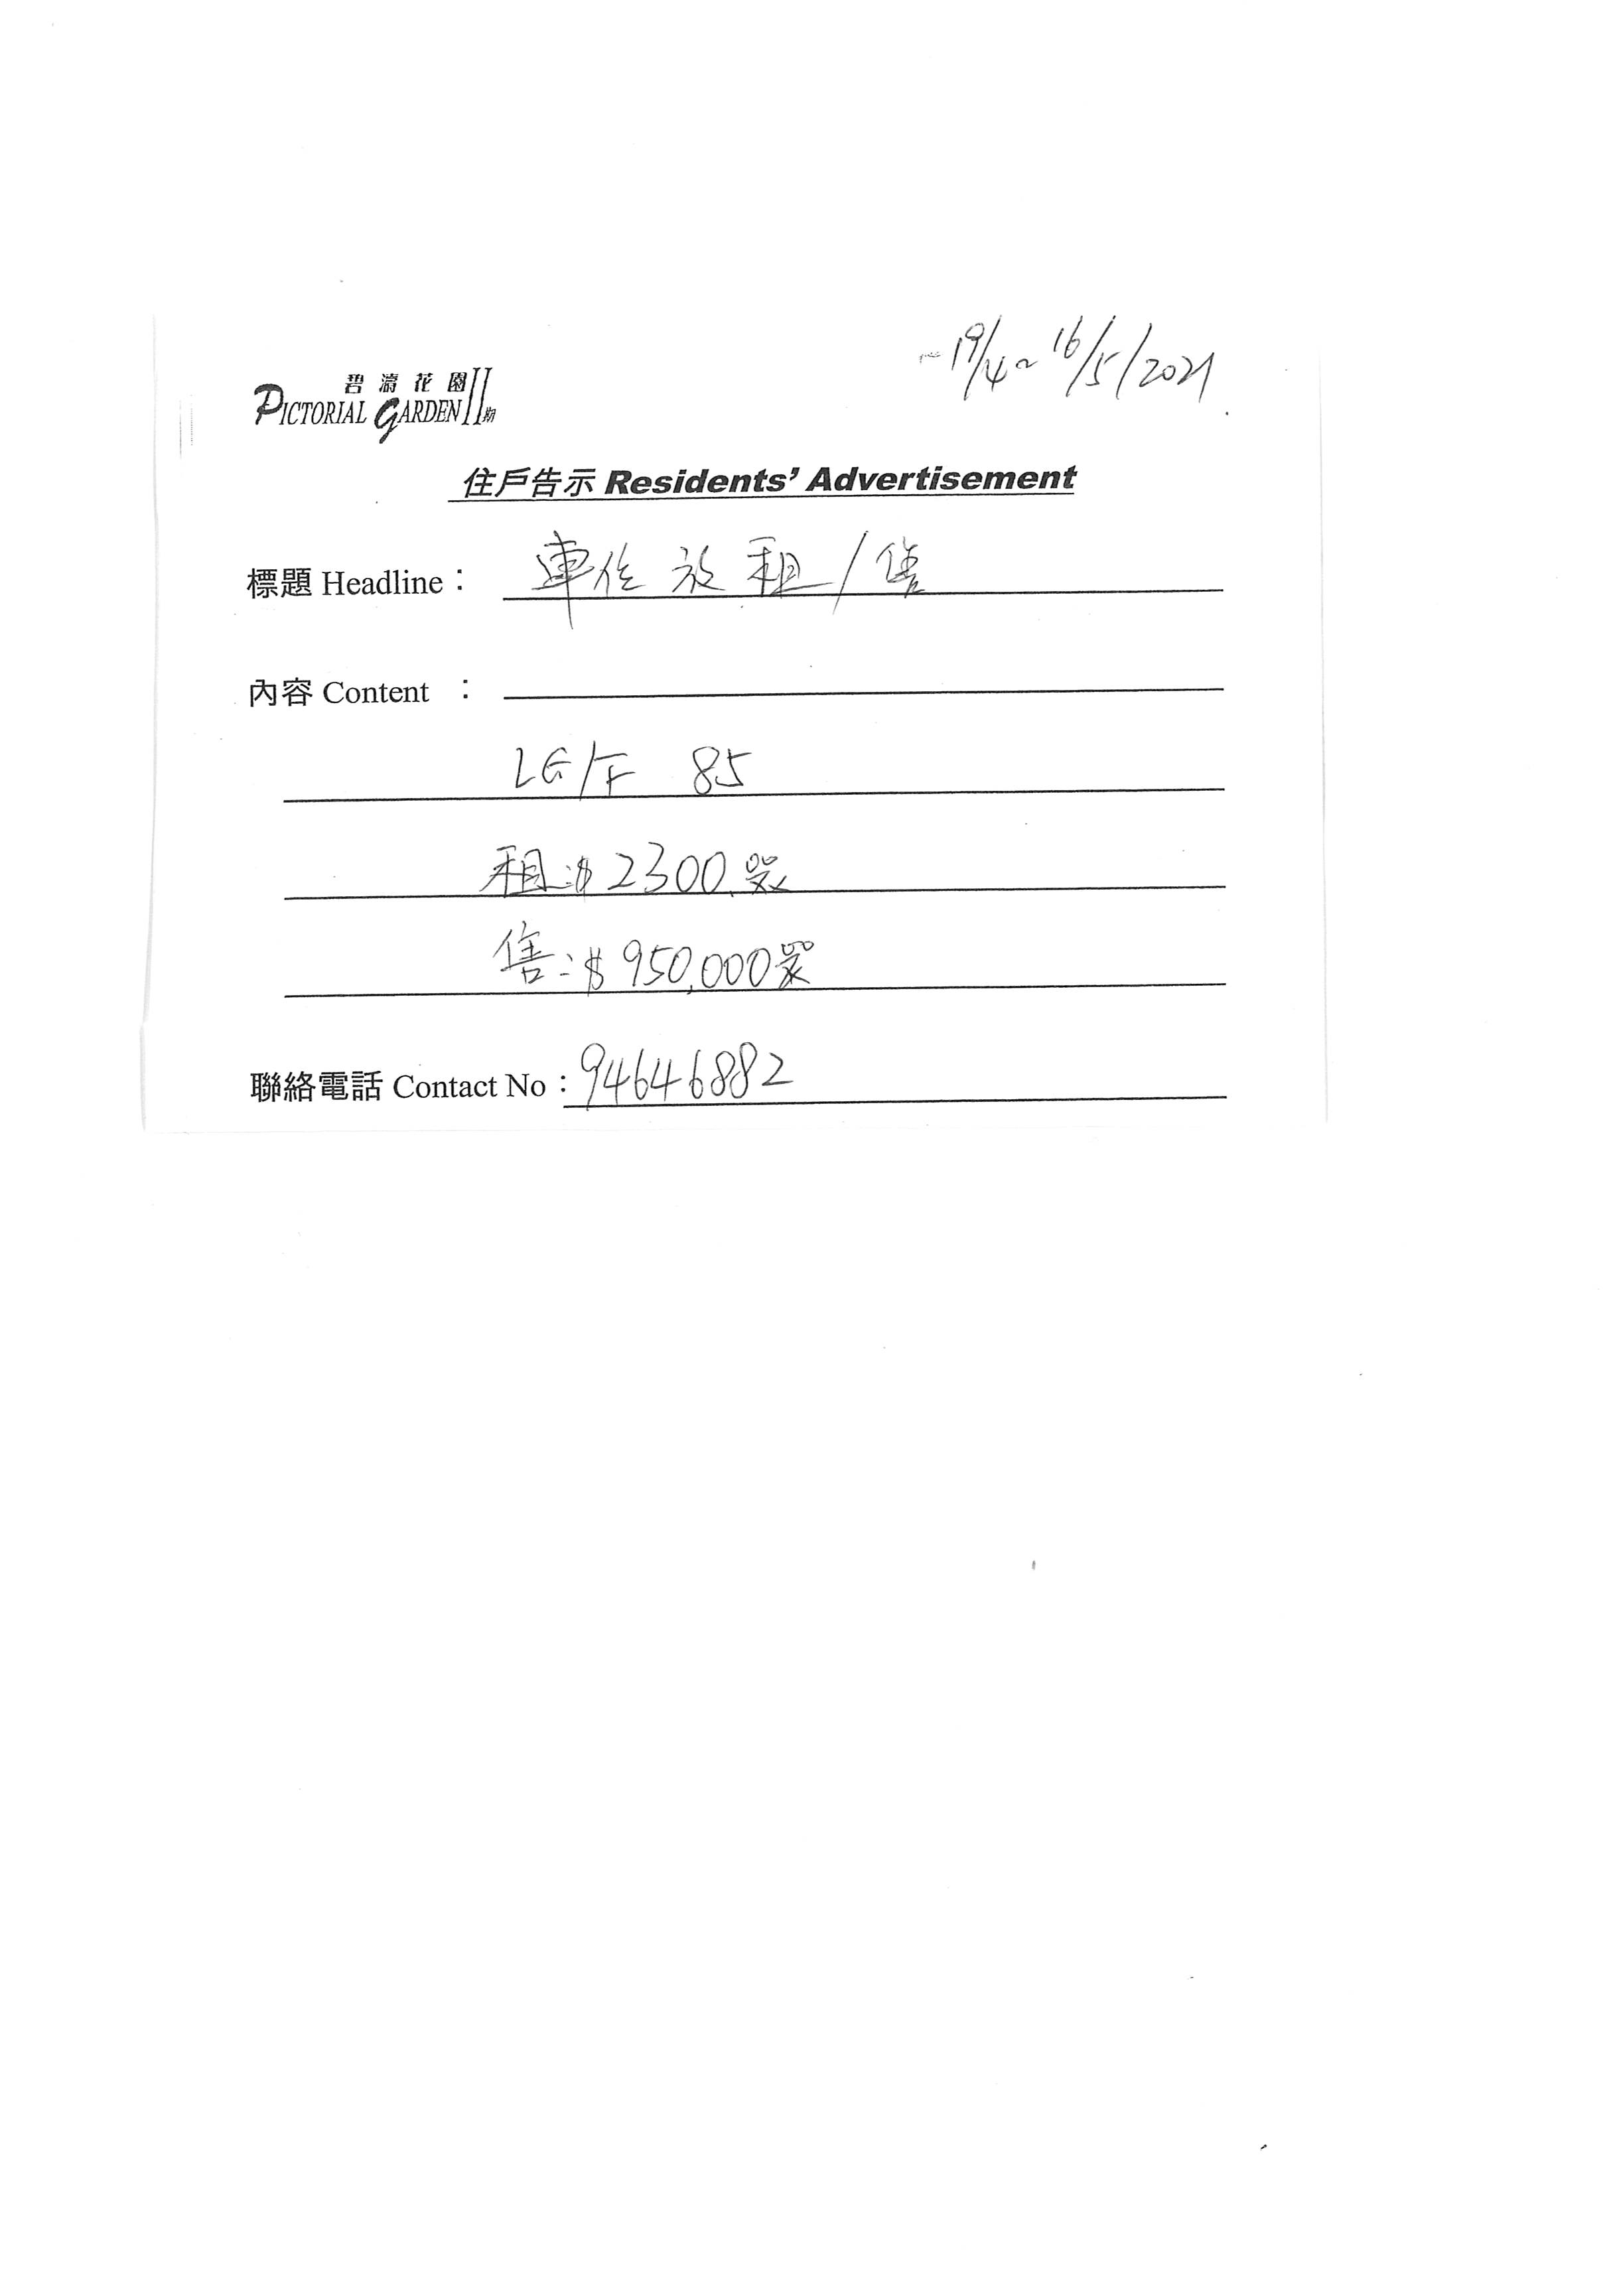 19/4~16/5/2021
碧濤花園 II 期
PICTORIAL GARDEN
住戶告示 Residents' Advertisement
標題 Headline： 車位放租/售
內容 Content ：
LG/F 85
租:$2300
售:$950,000
聯絡電話 Contact No：94646882